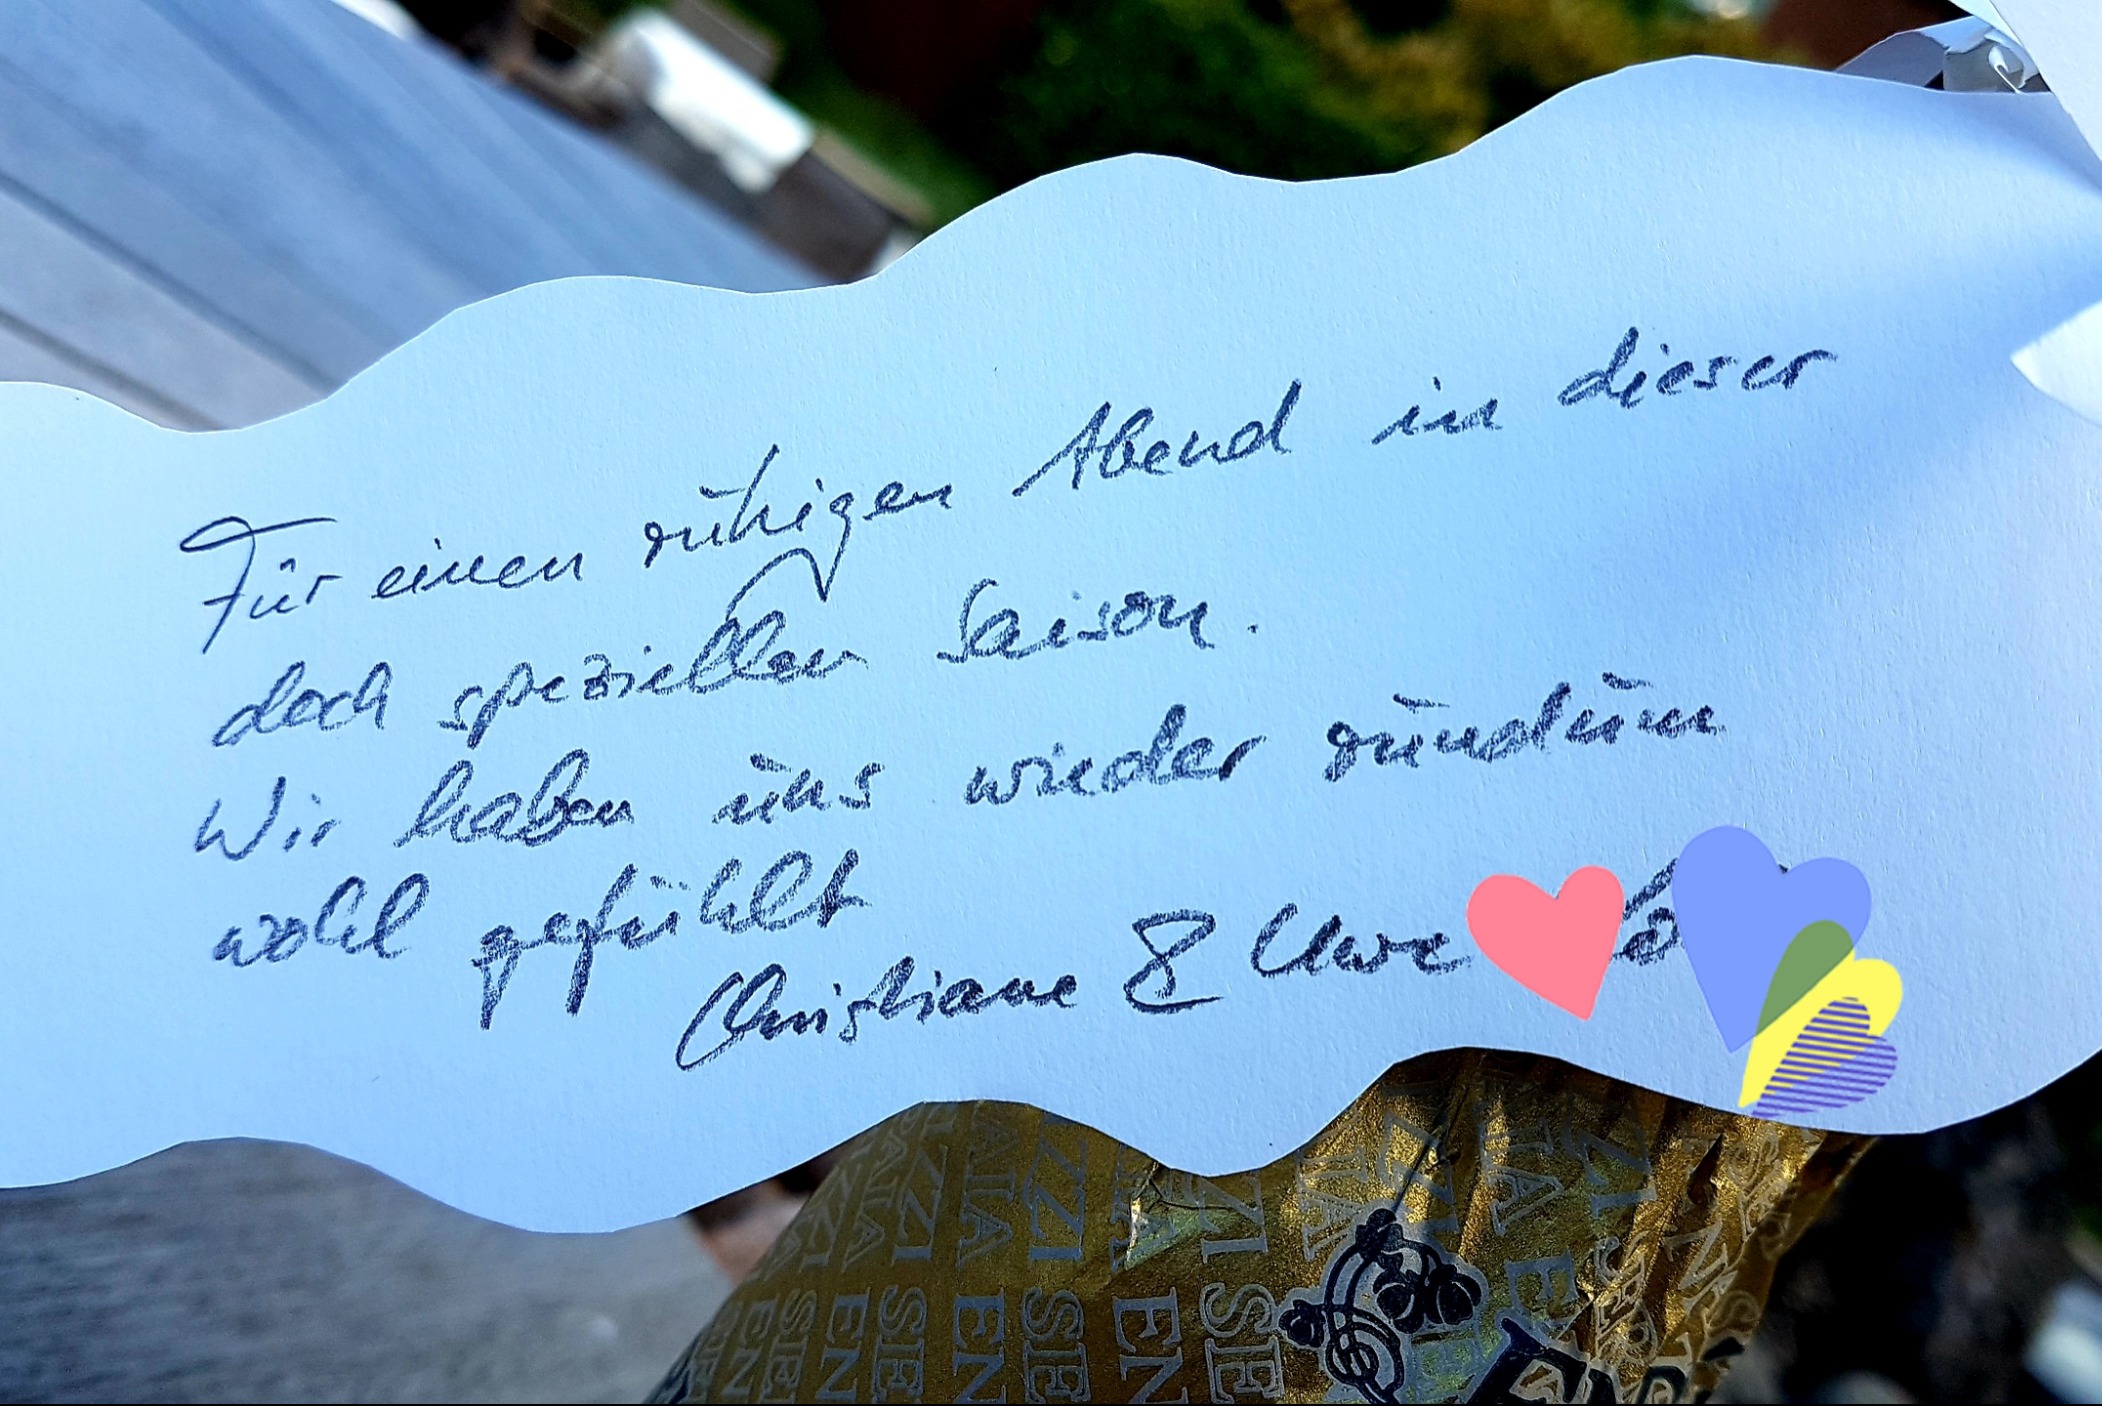 Für einen ruhigen Abend in dieser
doch speziellen Saison.
Wir haben uns wieder rundum
wohl gefühlt
Christiane & Uwe